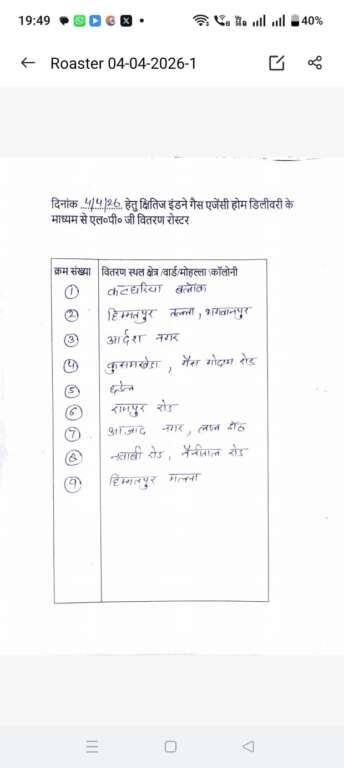 19:49
40%
Roaster 04-04-2026-1
दिनांक 4/4/26 हेतु क्षितिज इंडने गैस एजेंसी होम डिलीवरी के
माध्यम से एल०पी० जी वितरण रोस्टर
क्रम संख्या वितरण स्थल क्षेत्र /वार्ड/मोहल्ला /कॉलोनी
1 कठघरिया
2 हिम्मतपुर तल्ला, भगवानपुर
3 आर्दश नगर
4 कुसुमखेड़ा, गैस गोदाम रोड
5
6 रामपुर रोड
7 आजाद नगर,
8 नवाबी रोड, नैनीताल रोड
9 हिम्मतपुर मल्ला